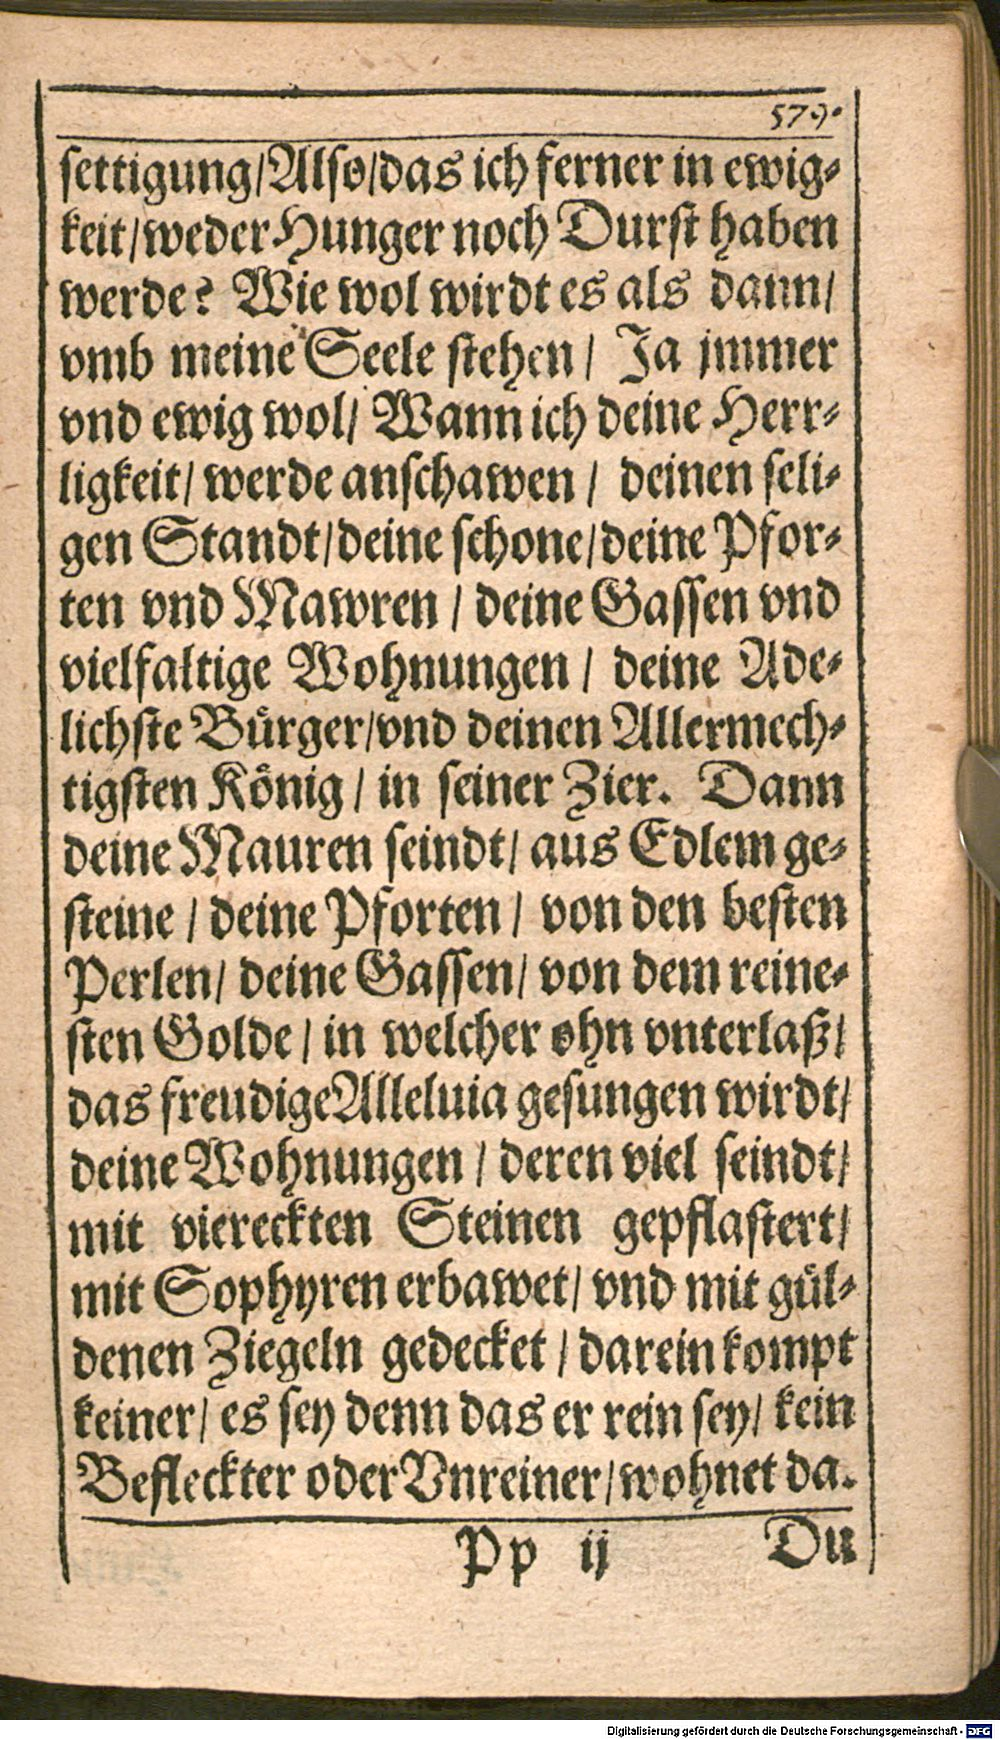 579.
settigung/Also/das ich ferner in ewig-
keit/weder Hunger noch Durst haben
werde? Wie wol wirdt es als dann/
vmb meine Seele stehen/ Ja jmmer
vnd ewig wol/ Wann ich deine Herr-
ligkeit/ werde anschawen/ deinen seli-
gen Standt/deine schone/deine Pfor-
ten vnd Mawren/ deine Gassen vnd
vielfaltige Wohnungen/ deine Ade-
lichste Bürger/vnd deinen Allermech-
tigsten König/ in seiner Zier. Dann
deine Mauren seindt/ aus Edlem ge-
steine/ deine Pforten/ von den besten
Perlen/ deine Gassen/ von dem reine-
sten Golde/ in welcher ohn vnterlaß/
das freudige Alleluia gesungen wirdt/
deine Wohnungen/ deren viel seindt/
mit viereckten Steinen gepflastert/
mit Sophyren erbawet/ vnd mit gül-
denen Ziegeln gedecket/ darein kompt
keiner/ es sey denn das er rein sey/ kein
Befleckter oder Vnreiner/wohnet da.
Pp ij Du
Digitalisierung gefördert durch die Deutsche Forschungsgemeinschaft - DFG